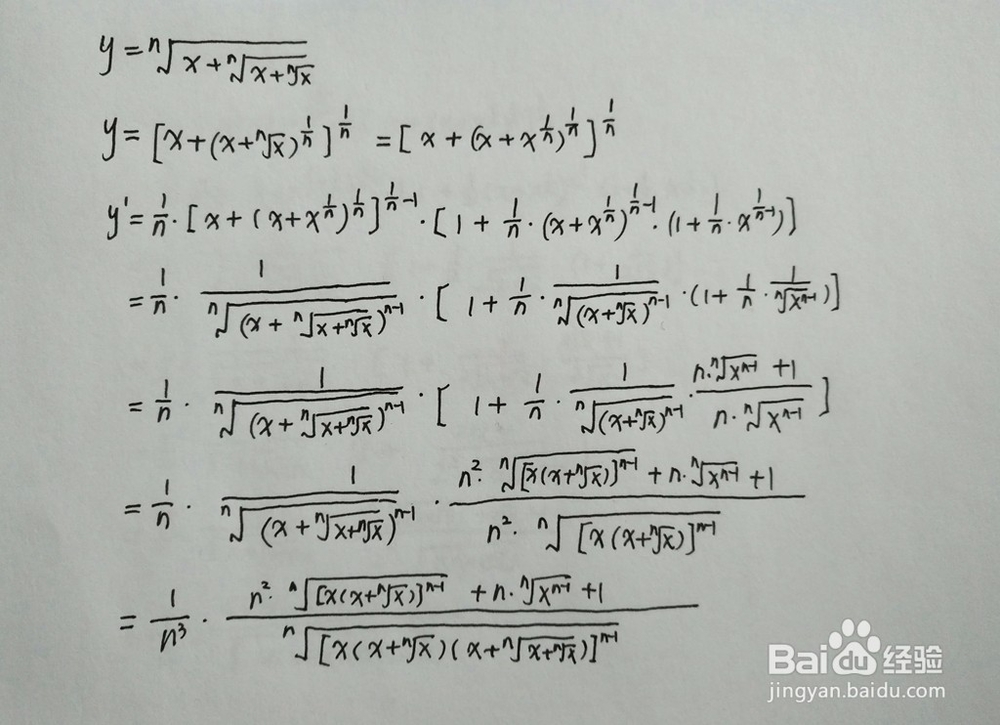 y = ⁿ√(x + ⁿ√(x + ⁿ√x))
y = [x + (x + ⁿ√x)^(1/n)]^(1/n) = [x + (x + x^(1/n))^(1/n)]^(1/n)
y' = 1/n · [x + (x + x^(1/n))^(1/n)]^(1/n - 1) · [1 + 1/n · (x + x^(1/n))^(1/n - 1) · (1 + 1/n · x^(1/n - 1))]
= 1/n · 1/ⁿ√((x + ⁿ√(x + ⁿ√x))^(n-1)) · [1 + 1/n · 1/ⁿ√((x + ⁿ√x)^(n-1)) · (1 + 1/n · 1/ⁿ√(x^(n-1)))]
= 1/n · 1/ⁿ√((x + ⁿ√(x + ⁿ√x))^(n-1)) · [1 + 1/n · 1/ⁿ√((x + ⁿ√x)^(n-1)) · (n · ⁿ√(x^(n-1)) + 1)/(n · ⁿ√(x^(n-1)))]
= 1/n · 1/ⁿ√((x + ⁿ√(x + ⁿ√x))^(n-1)) · (n² · ⁿ√([x(x + ⁿ√x)]^(n-1)) + n · ⁿ√(x^(n-1)) + 1)/(n² · ⁿ√([x(x + ⁿ√x)]^(n-1)))
= 1/n³ · (n² · ⁿ√([x(x + ⁿ√x)]^(n-1)) + n · ⁿ√(x^(n-1)) + 1)/ⁿ√([x(x + ⁿ√x)(x + ⁿ√(x + ⁿ√x))]^(n-1))
Baidu 经验
jingyan.baidu.com